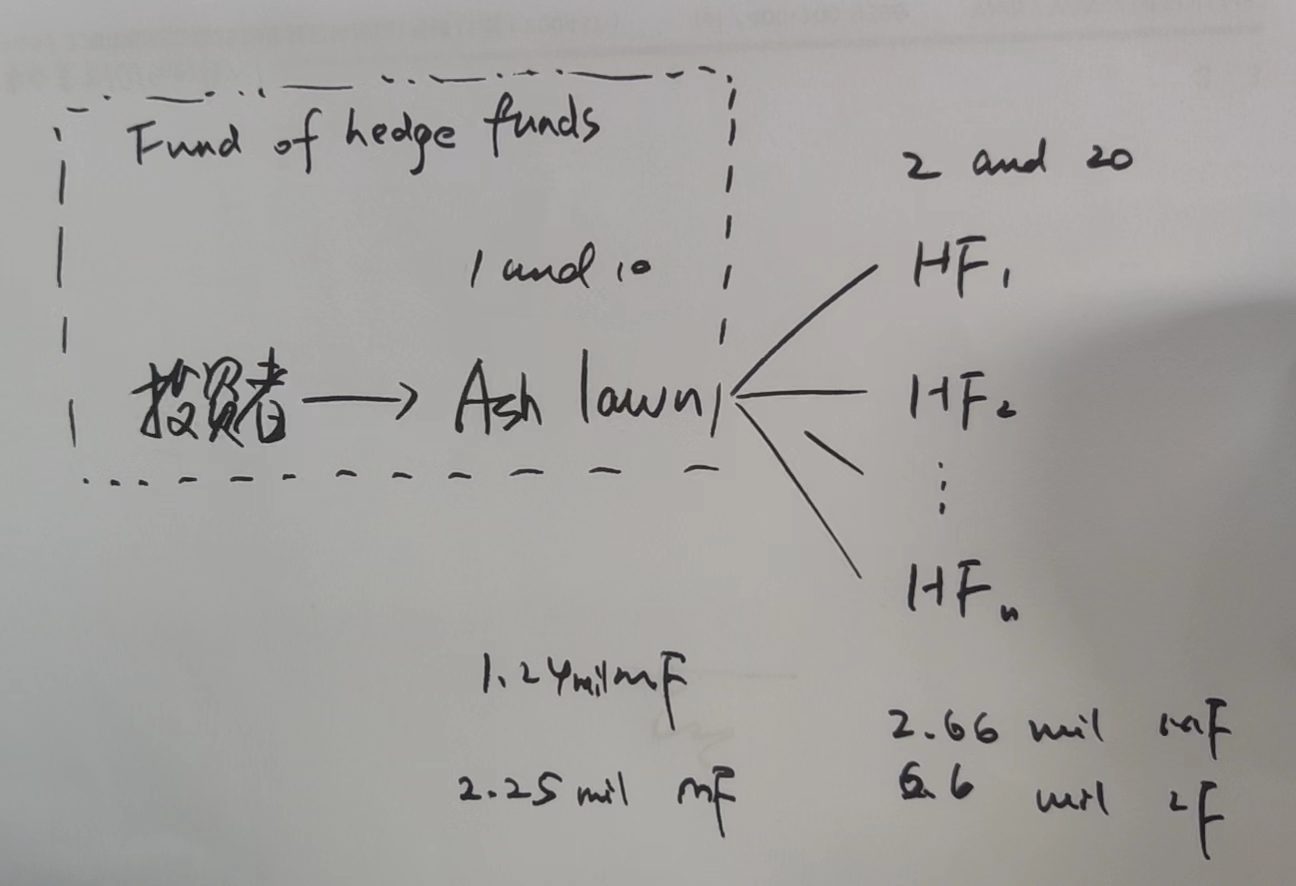 Fund of hedge funds
2 and 20
1 and 10
HF₁
投資者 → Ash lawn
HF₂
⋮
HFₙ
1.24 mil mF
2.66 mil mF
2.25 mil mF
6.6 mil 2F